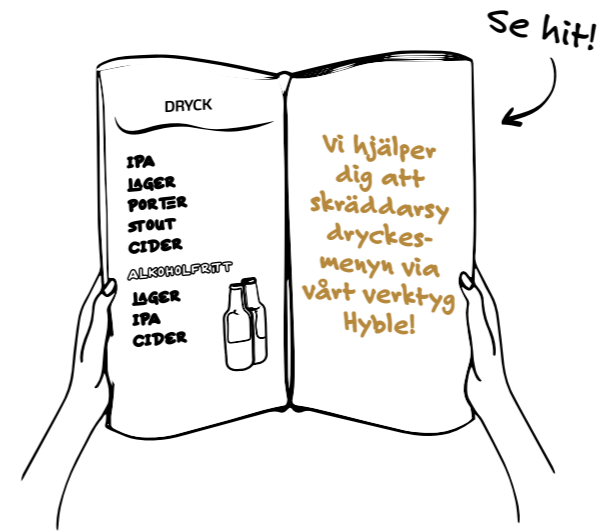 Se hit!
DRYCK
IPA
LAGER
PORTER
STOUT
CIDER
ALKOHOLFRITT
LAGER
IPA
CIDER
Vi hjälper
dig att
skräddarsy
dryckes-
menyn via
vårt verktyg
Hyble!